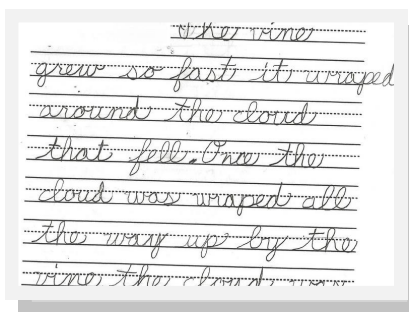 The vine
grew so fast it wraped
around the cloud
that fell. Once the
cloud was wraped all
the way up by the
vine the cloud was